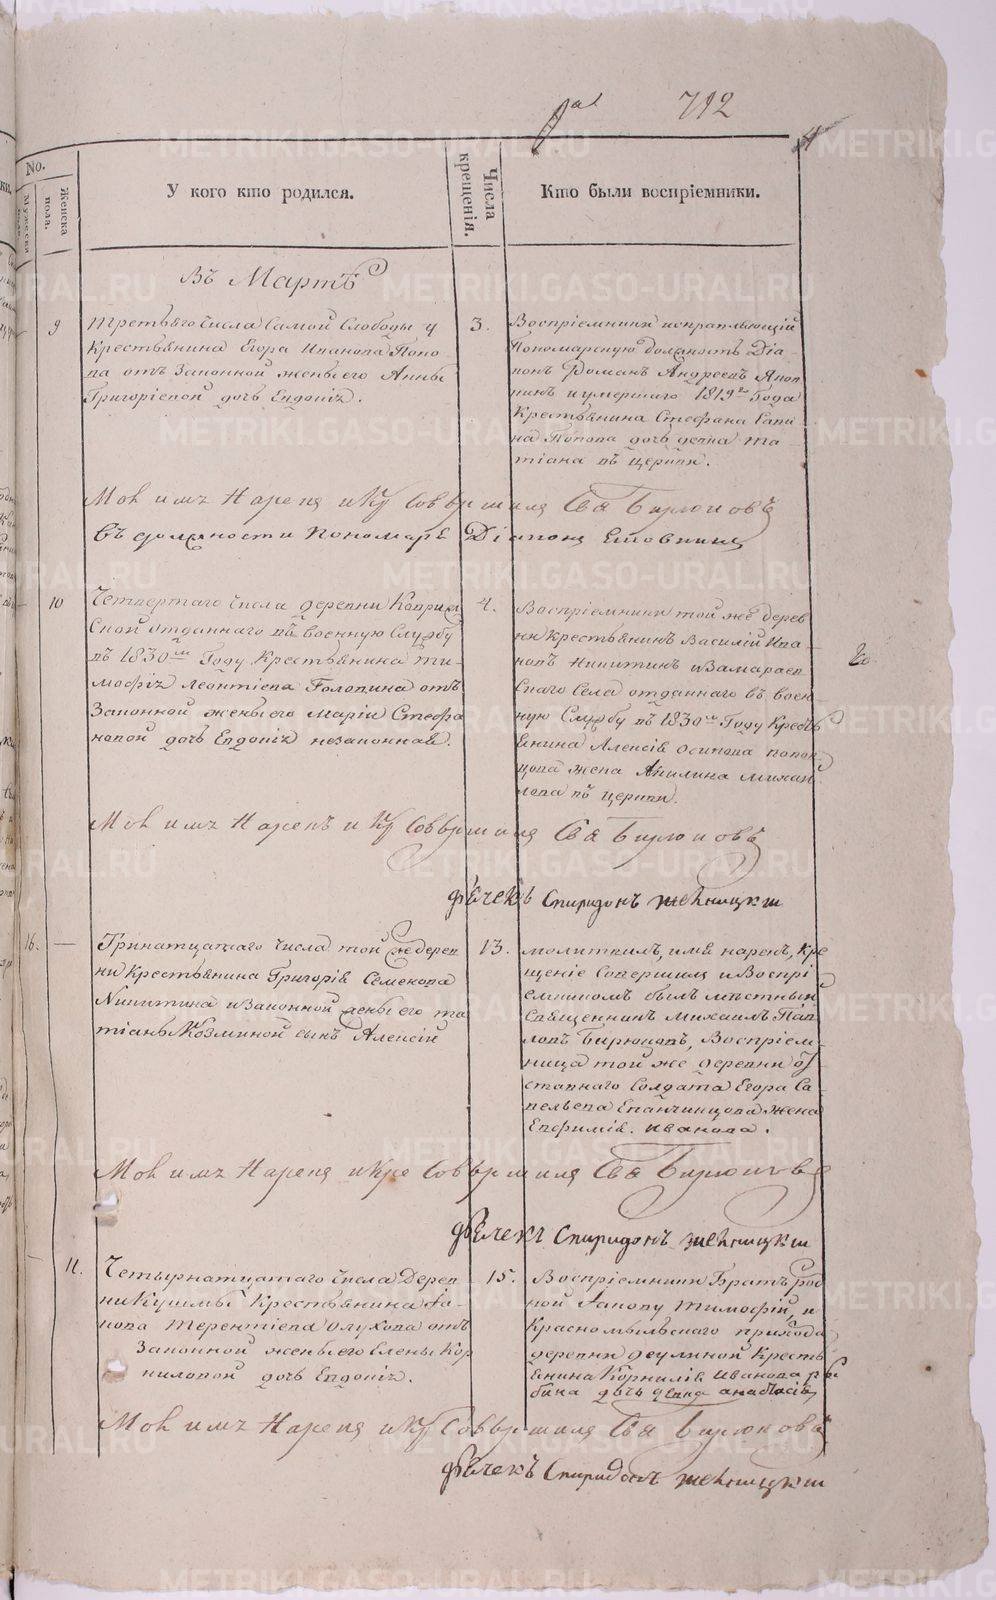 792
No.
Мужеска пола.
Женска пола.
У кого кто родился.
Числа крещенія.
Кто были воспріемники.
Въ Мартѣ
9
Третьяго числа самой слободы у
крестьянина Егора Иванова Попо-
ва отъ законной жены его Анны
Григоріевой дочь Евдокія.
3.
Воспріемники исправляющій
пономарскую должность Діа-
конъ Романъ Андреевъ
и умершаго 1819го года
крестьянина Стефана
Попова дочь девка Та-
тіана въ церкви.
Мол имя Нарекъ и Кр Совершилъ Свя Бирюковъ
Въ должности пономаря Діаконъ
10
Четвертаго числа деревни
отданнаго въ военную службу
въ 1830м году крестьянина Ти-
мофея Леонтіева Головина отъ
законной жены его Маріи Стефа
новой дочь Евдокія незаконная.
4.
Воспріемники той же дерев
ни крестьянинъ Василій Ива-
новъ Никитинъ и Замараев
скаго села отданнаго въ воен
ную службу въ 1830м году кресть
янина Алексія Осипова
жена Акилина Михай
лова въ церкви.
Мол имя Нарекъ и Кр Совершилъ Свя Бирюковъ
Дьячекъ Спиридонъ
16.
—
Тринатцатаго числа той же дерев
ни крестьянина Григорія Семенова
Никитина и законной жены его Та
тіаны Козминой сынъ Алексій
13.
Молитвилъ, имя нарекъ, кре
щеніе совершилъ и воспрі
емникомъ былъ местный
священникъ Михаилъ Пав
ловъ Бирюковъ, воспріем-
ница той же деревни от
ставнаго солдата Егора Са-
вельева Епанчинцова жена
Евфимія Иванова.
Мол имя Нарекъ и Кре Совершилъ Свя Бирюковъ
Дьячекъ Спиридонъ
11.
Четырнатцатаго числа дерев
ни Кушмы крестьянина Іа-
кова Терентіева Олухова отъ
законной жены его Елены Кор
ниловой дочь Евдокія.
15.
Воспріемники братъ род
ной Іакову Тимофій, и
Красномыльскаго прихода
деревни Деулиной кресть
янина Корнилія Иванова Ря
бина дочь девка Анастасія
Мол имя Нарекъ и Кр Совершилъ Свя Бирюковъ
Дьячекъ Спиридонъ
METRIKI.GASO-URAL.RU